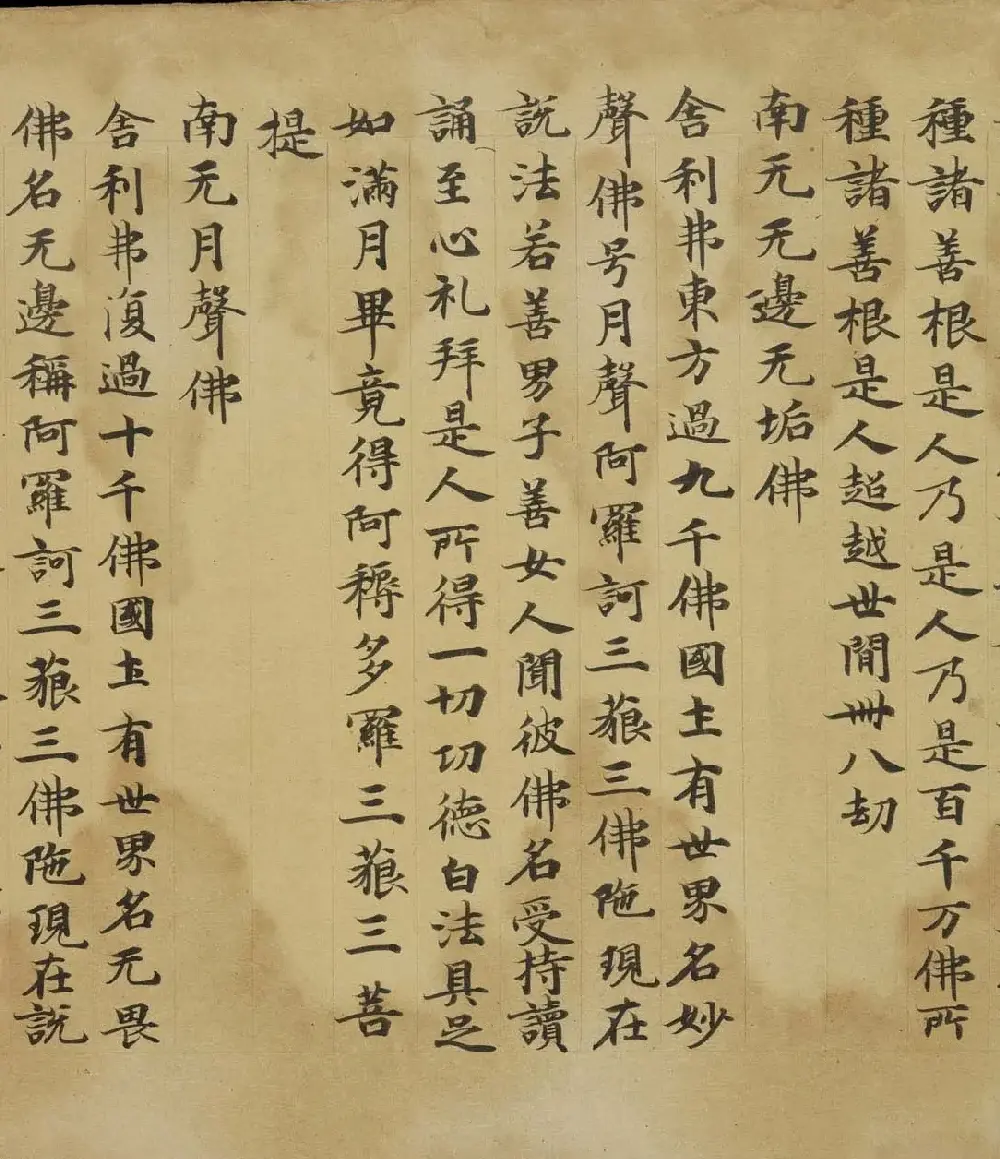 種諸善根是人乃是人乃是百千万佛所
種諸善根是人超越世間卌八劫
南无无邊无垢佛
舎利弗東方過九千佛國土有世界名妙
聲佛号月聲阿羅訶三藐三佛陁現在
說法若善男子善女人聞彼佛名受持讀
誦至心礼拜是人所得一切切德白法具足
如滿月畢竟得阿耨多羅三藐三菩
提
南无月聲佛
舎利弗復過十千佛國土有世界名无畏
佛名无邊稱阿羅訶三藐三佛陁現在說